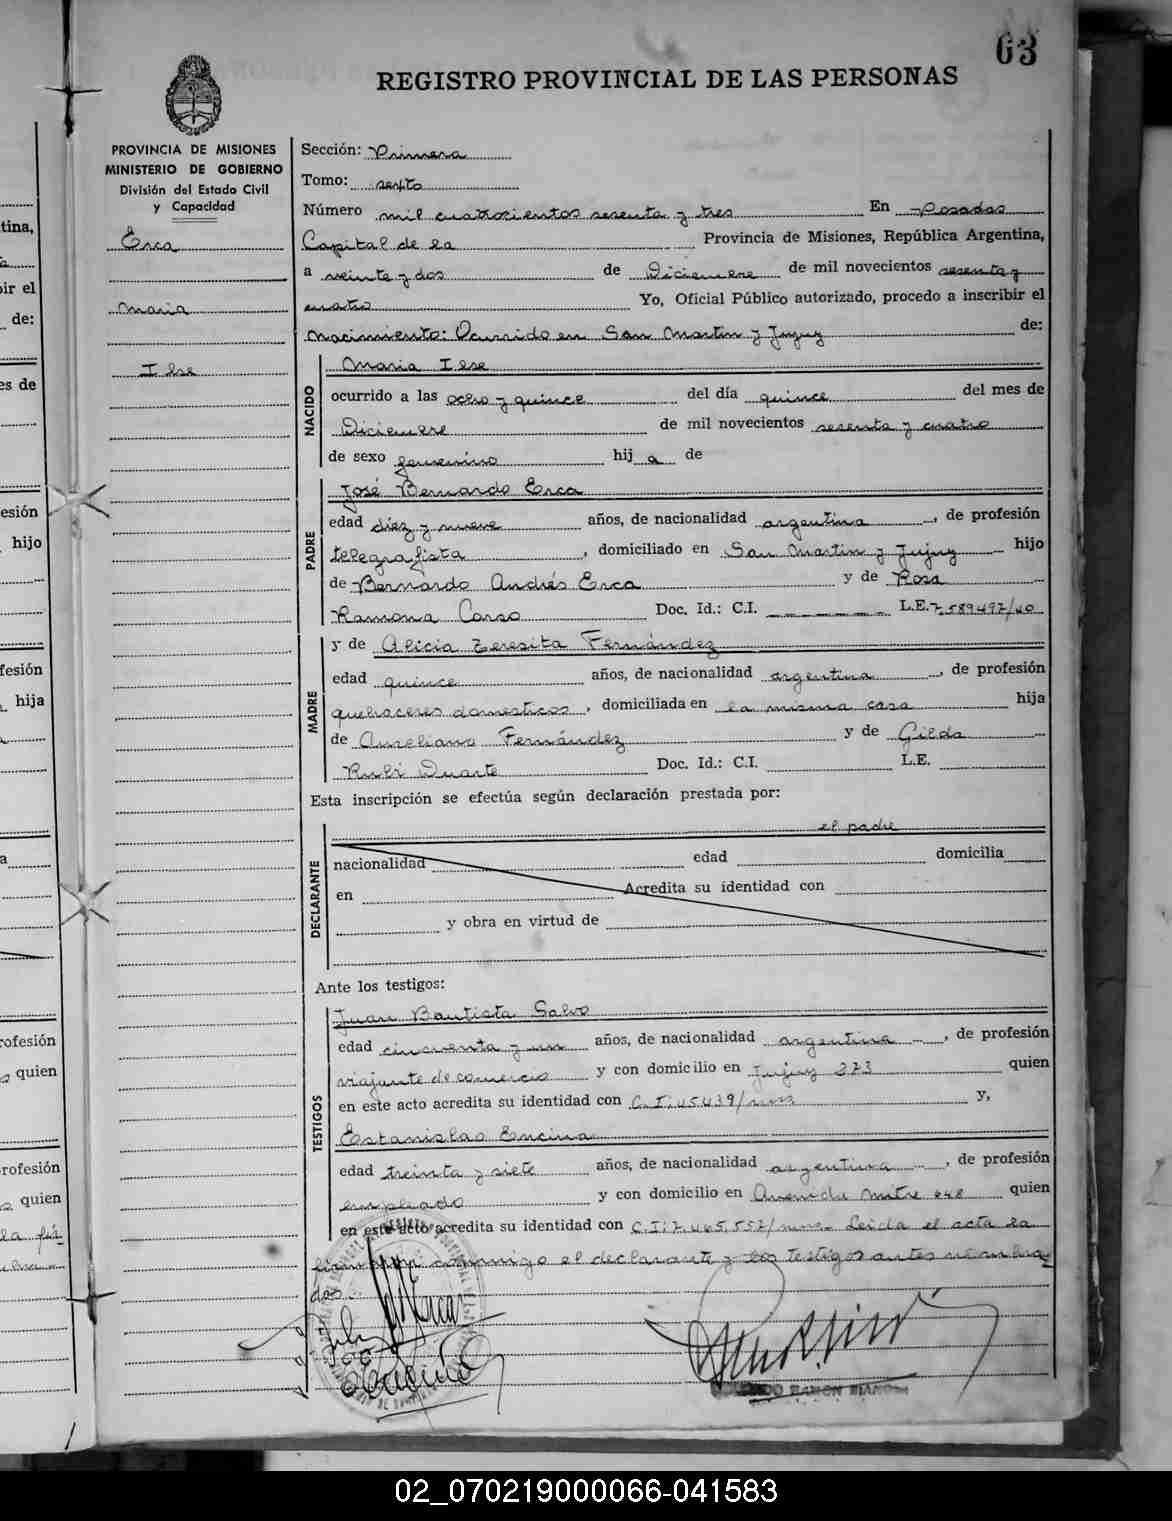 63
REGISTRO PROVINCIAL DE LAS PERSONAS
PROVINCIA DE MISIONES
MINISTERIO DE GOBIERNO
División del Estado Civil
y Capacidad
Erca
Maria
Ilse
Sección: Primera
Tomo: sexto
Número mil cuatrocientos sesenta y tres En Posadas
Capital de la Provincia de Misiones, República Argentina,
a veinte y dos de Diciembre de mil novecientos sesenta y
cuatro Yo, Oficial Público autorizado, procedo a inscribir el
Nacimiento: Ocurrido en San Martin y Jujuy de:
NACIDO
Maria Ilse
ocurrido a las ocho y quince del día quince del mes de
Diciembre de mil novecientos sesenta y cuatro
de sexo femenino hij a de
PADRE
José Bernardo Erca
edad diez y nueve años, de nacionalidad argentina, de profesión
telegrafista, domiciliado en San Martin y Jujuy hijo
de Bernardo Andrés Erca y de Rosa
Ramona Corso Doc. Id.: C.I. L.E. 7.589497/40
MADRE
y de Alicia Teresita Fernández
edad quince años, de nacionalidad argentina, de profesión
quehaceres domesticos, domiciliada en la misma casa hija
de Aureliano Fernández y de Gilda
Rubi Duarte Doc. Id.: C.I. L.E.
Esta inscripción se efectúa según declaración prestada por:
DECLARANTE
el padre
nacionalidad edad domicilia
en Acredita su identidad con
y obra en virtud de
Ante los testigos:
TESTIGOS
Juan Bautista Salvo
edad cincuenta y un años, de nacionalidad argentina, de profesión
viajante de comercio y con domicilio en Jujuy 273 quien
en este acto acredita su identidad con C.I. 45439/ y,
Estanislao Encina
edad treinta y siete años, de nacionalidad argentina, de profesión
empleado y con domicilio en Avenida Mitre 648 quien
en este acto acredita su identidad con C.I: 7.465.557/ Leida el acta la
conmigo el declarante y los testigos antes nombra
dos.
RAMON BIANCHI
tina,
ir el
de:
es de
esión
hijo
fesión
hija
a
rofesión
quien
rofesión
quien
02_070219000066-041583